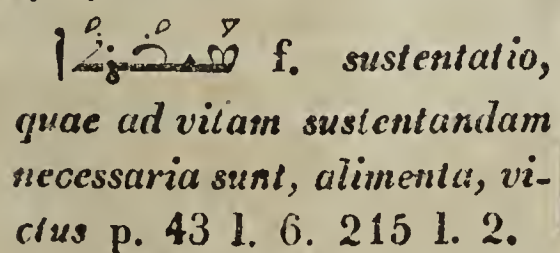 ܣܰܝܒܳܪܬܳܐ f. sustentatio,
quae ad vitam sustentandam
necessaria sunt, alimenta, vi-
ctus p. 43 l. 6. 215 l. 2.